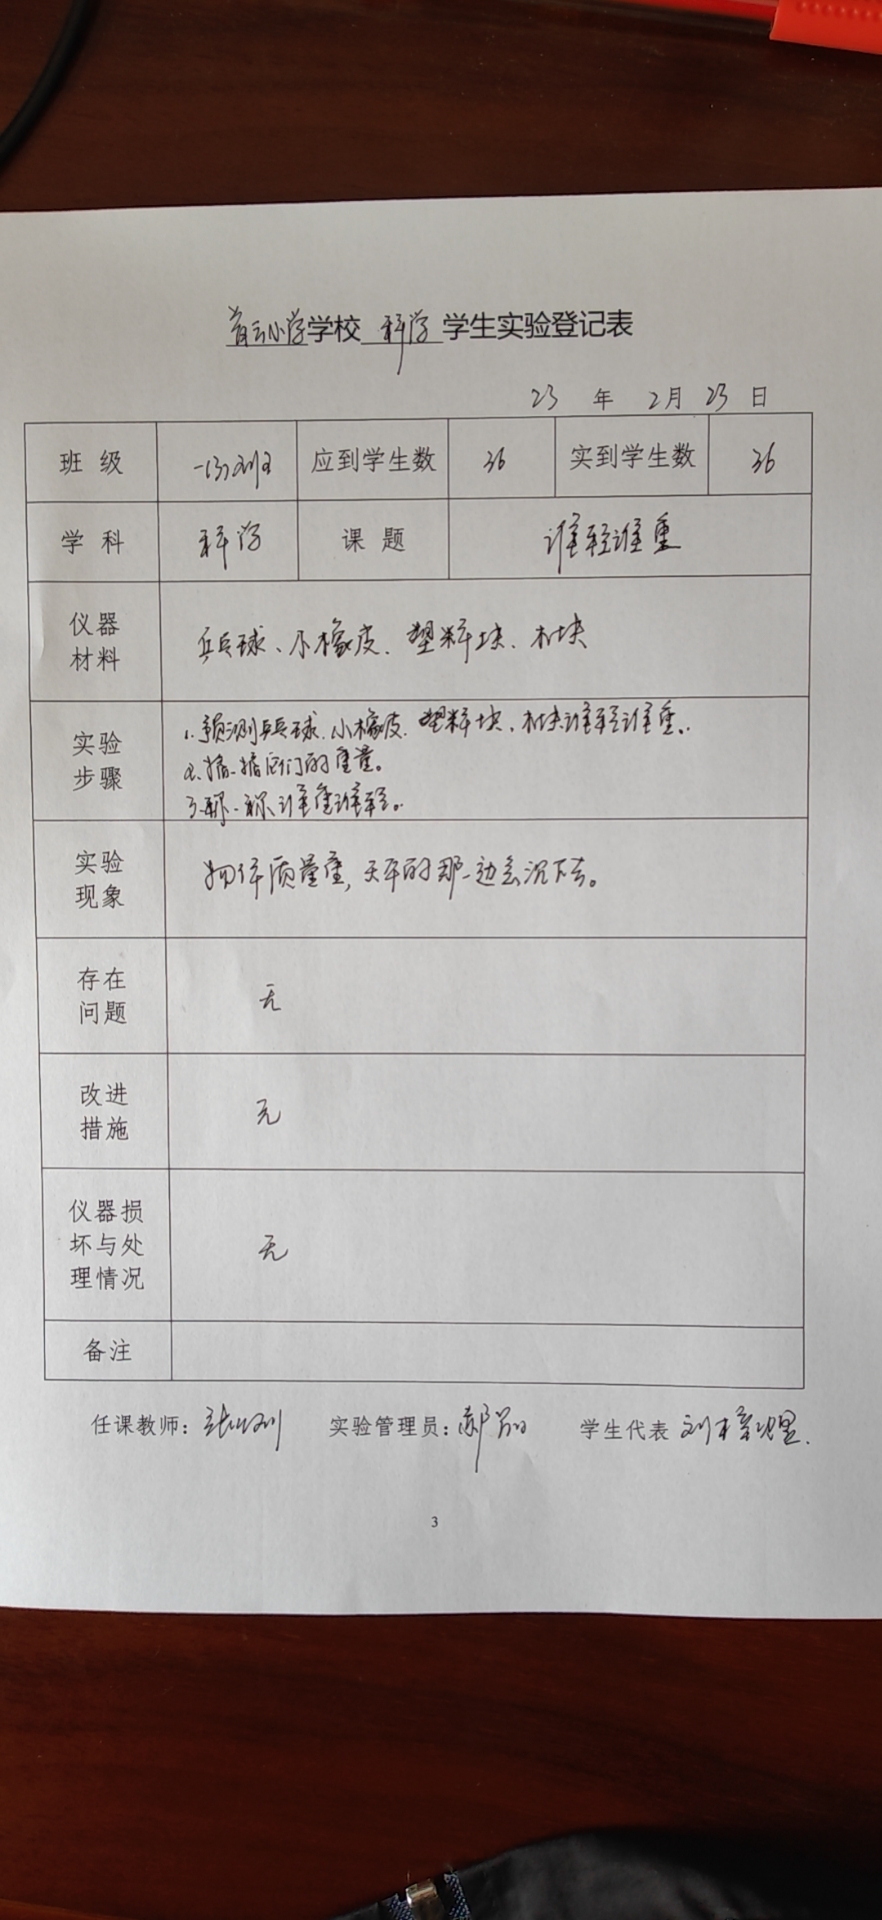 育云小学学校 科学 学生实验登记表
23 年 2月 23 日
班 级 一(3)班 应到学生数 36 实到学生数 36
学 科 科学 课 题 谁轻谁重
仪器
材料
乒乓球、小橡皮、塑料块、木块
实验
步骤
1.预测乒乓球、小橡皮、塑料块、木块谁轻谁重。
2.掂一掂它们的重量。
3.称一称谁重谁轻。
实验
现象
物体质量重,天平的那一边会沉下去。
存在
问题
无
改进
措施
无
仪器损
坏与处
理情况
无
备注
任课教师: 实验管理员: 学生代表
3